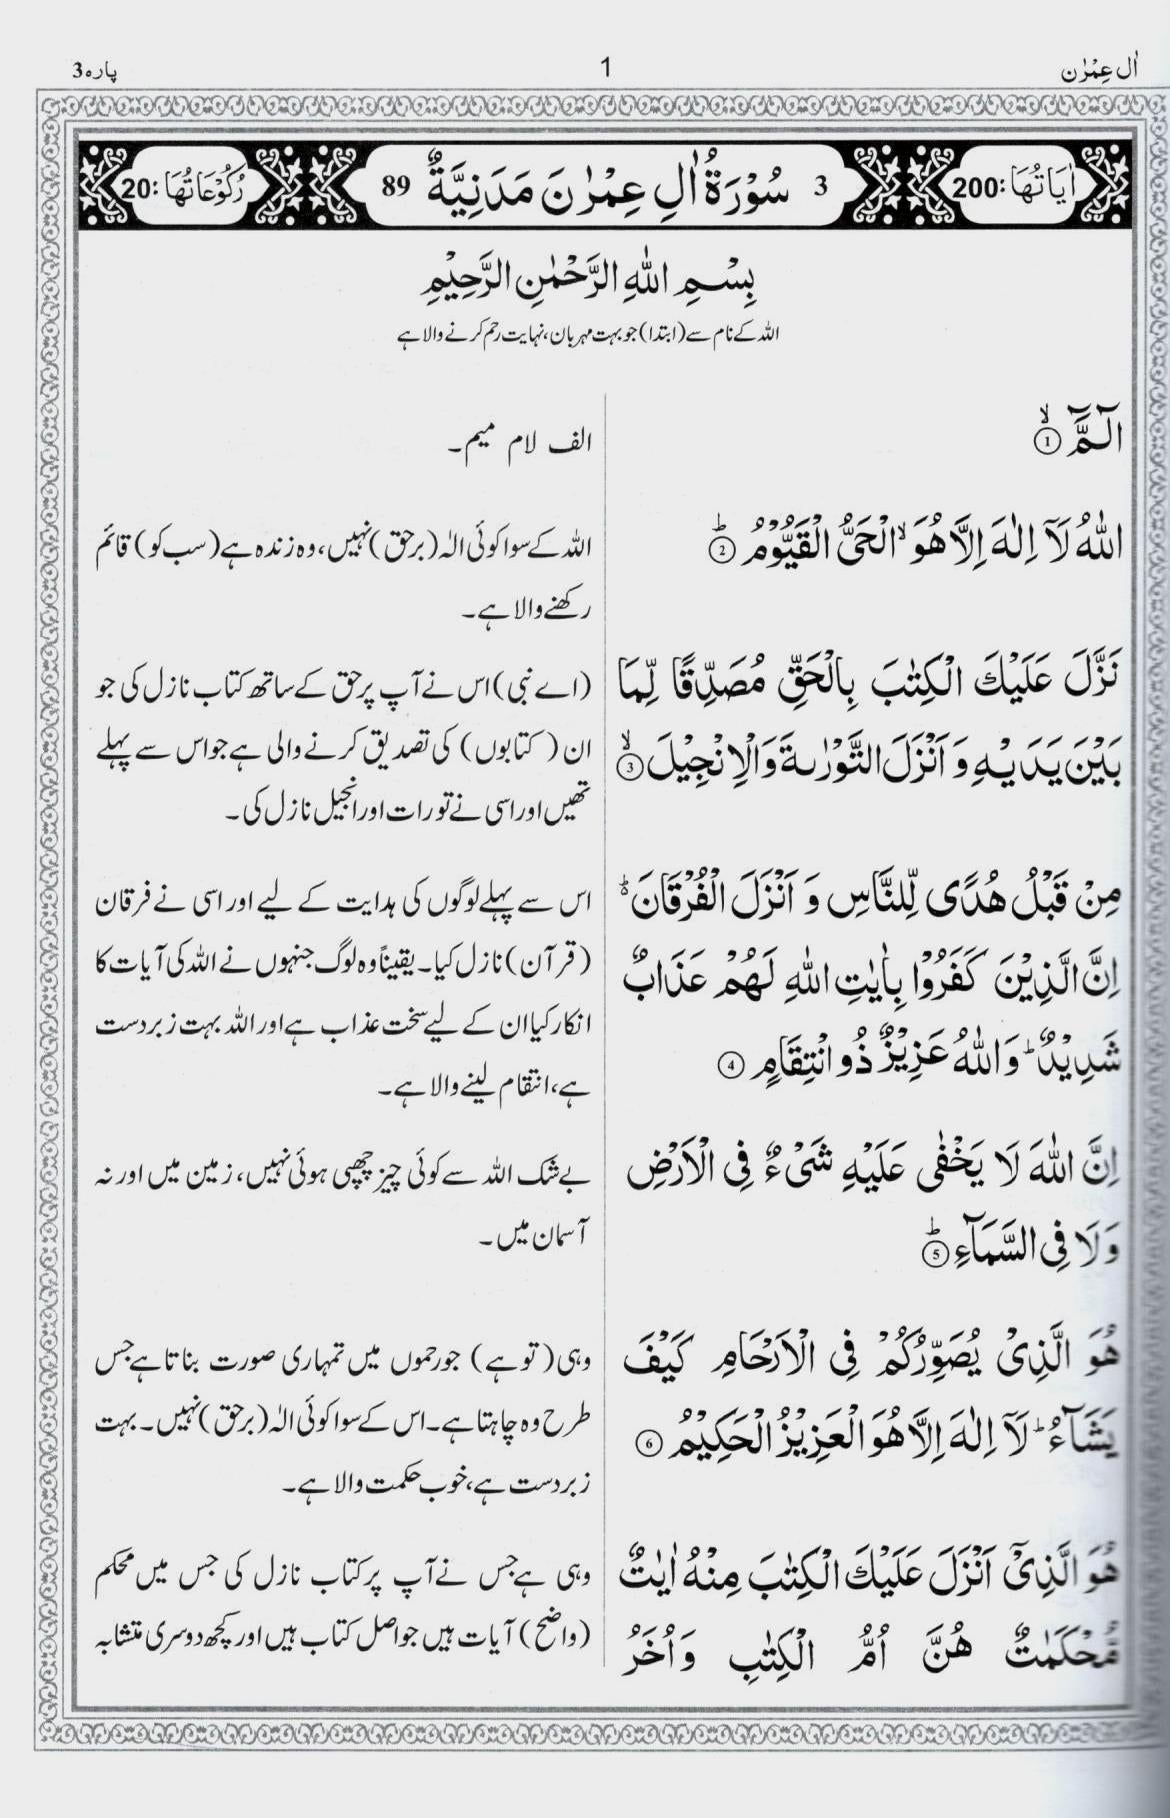 اٰل عِمْرٰن
1
پارہ 3
اٰيَاتُهَا: 200
3 سُوْرَةُ اٰلِ عِمْرٰنَ مَدَنِيَّةٌ 89
رُكُوْعَاتُهَا: 20
بِسْمِ اللّٰهِ الرَّحْمٰنِ الرَّحِيْمِ
اللہ کے نام سے (ابتدا) جو بہت مہربان، نہایت رحم کرنے والا ہے
الٓمَّٓ ۙ ①
الف لام میم۔
اللّٰهُ لَآ اِلٰهَ اِلَّا هُوَ ۙ الْحَيُّ الْقَيُّوْمُ ؕ ②
اللہ کے سوا کوئی الٰہ (برحق) نہیں، وہ زندہ ہے (سب کو) قائم
رکھنے والا ہے۔
نَزَّلَ عَلَيْكَ الْكِتٰبَ بِالْحَقِّ مُصَدِّقًا لِّمَا
بَيْنَ يَدَيْهِ وَ اَنْزَلَ التَّوْرٰىةَ وَالْاِنْجِيْلَ ۙ ③
(اے نبی) اس نے آپ پر حق کے ساتھ کتاب نازل کی جو
ان (کتابوں) کی تصدیق کرنے والی ہے جو اس سے پہلے
تھیں اور اسی نے تورات اور انجیل نازل کی۔
مِنْ قَبْلُ هُدًى لِّلنَّاسِ وَ اَنْزَلَ الْفُرْقَانَ ؕ
اِنَّ الَّذِيْنَ كَفَرُوْا بِاٰيٰتِ اللّٰهِ لَهُمْ عَذَابٌ
شَدِيْدٌ ؕ وَاللّٰهُ عَزِيْزٌ ذُو انْتِقَامٍ ④
اس سے پہلے لوگوں کی ہدایت کے لیے اور اسی نے فرقان
(قرآن) نازل کیا۔ یقیناً وہ لوگ جنہوں نے اللہ کی آیات کا
انکار کیا ان کے لیے سخت عذاب ہے اور اللہ بہت زبردست
ہے، انتقام لینے والا ہے۔
اِنَّ اللّٰهَ لَا يَخْفٰى عَلَيْهِ شَىْءٌ فِى الْاَرْضِ
وَلَا فِى السَّمَآءِ ؕ ⑤
بے شک اللہ سے کوئی چیز چھپی ہوئی نہیں، زمین میں اور نہ
آسمان میں۔
هُوَ الَّذِىْ يُصَوِّرُكُمْ فِى الْاَرْحَامِ كَيْفَ
يَشَآءُ ؕ لَآ اِلٰهَ اِلَّا هُوَ الْعَزِيْزُ الْحَكِيْمُ ⑥
وہی (تو ہے) جو رحموں میں تمہاری صورت بناتا ہے جس
طرح وہ چاہتا ہے۔ اس کے سوا کوئی الٰہ (برحق) نہیں۔ بہت
زبردست ہے، خوب حکمت والا ہے۔
هُوَ الَّذِىْٓ اَنْزَلَ عَلَيْكَ الْكِتٰبَ مِنْهُ اٰيٰتٌ
مُّحْكَمٰتٌ هُنَّ اُمُّ الْكِتٰبِ وَاُخَرُ
وہی ہے جس نے آپ پر کتاب نازل کی جس میں محکم
(واضح) آیات ہیں جو اصل کتاب ہیں اور کچھ دوسری متشابہ